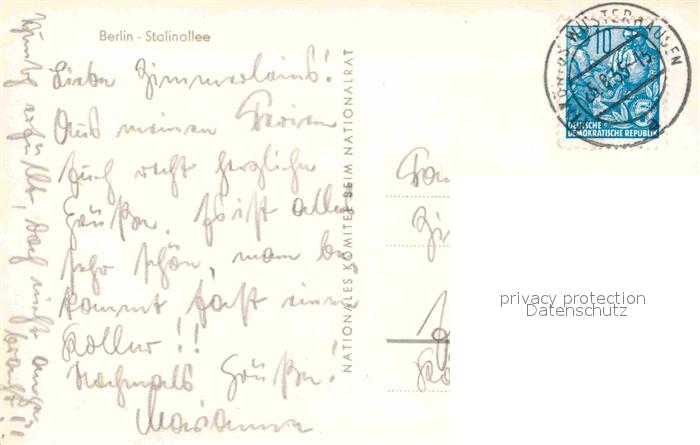 Berlin - Stalinallee
Liebe Zimmerleins!
Aus meinen Ferien
Euch recht herzliche
Grüße. Es ist alles
sehr schön, man be-
kommt fast einen
Koller!!
Nochmals Grüße!
Marianne
erfüllt, doch nicht
NATIONALES KOMITEE BEIM NATIONALRAT
10
DEUTSCHE
DEMOKRATISCHE REPUBLIK
WUSTERHAUSEN
Fam
Zi
privacy protection
Datenschutz